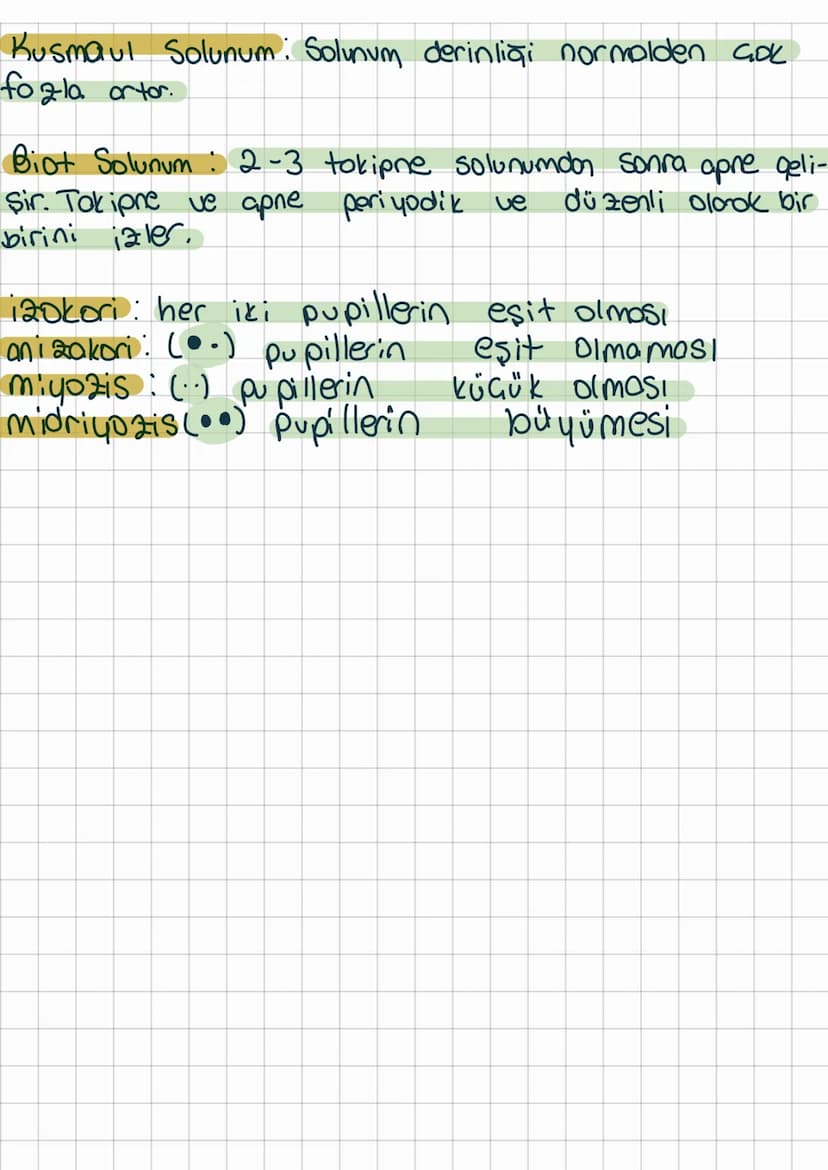 Kusmaul Solunum: Solunum derinliği normalden çok
fazla artar.
Biot Solunum: 2-3 takipne solunumdan sonra apne geli-
şir. Takipne ve apne periyodik ve düzenli olarak bir
birini izler.
izokori: her iki pupillerin eşit olması
anizokori: (• ·) pupillerin eşit olmaması
miyozis: (··) pupillerin küçük olması
midriyozis (••) pupillerin büyümesi